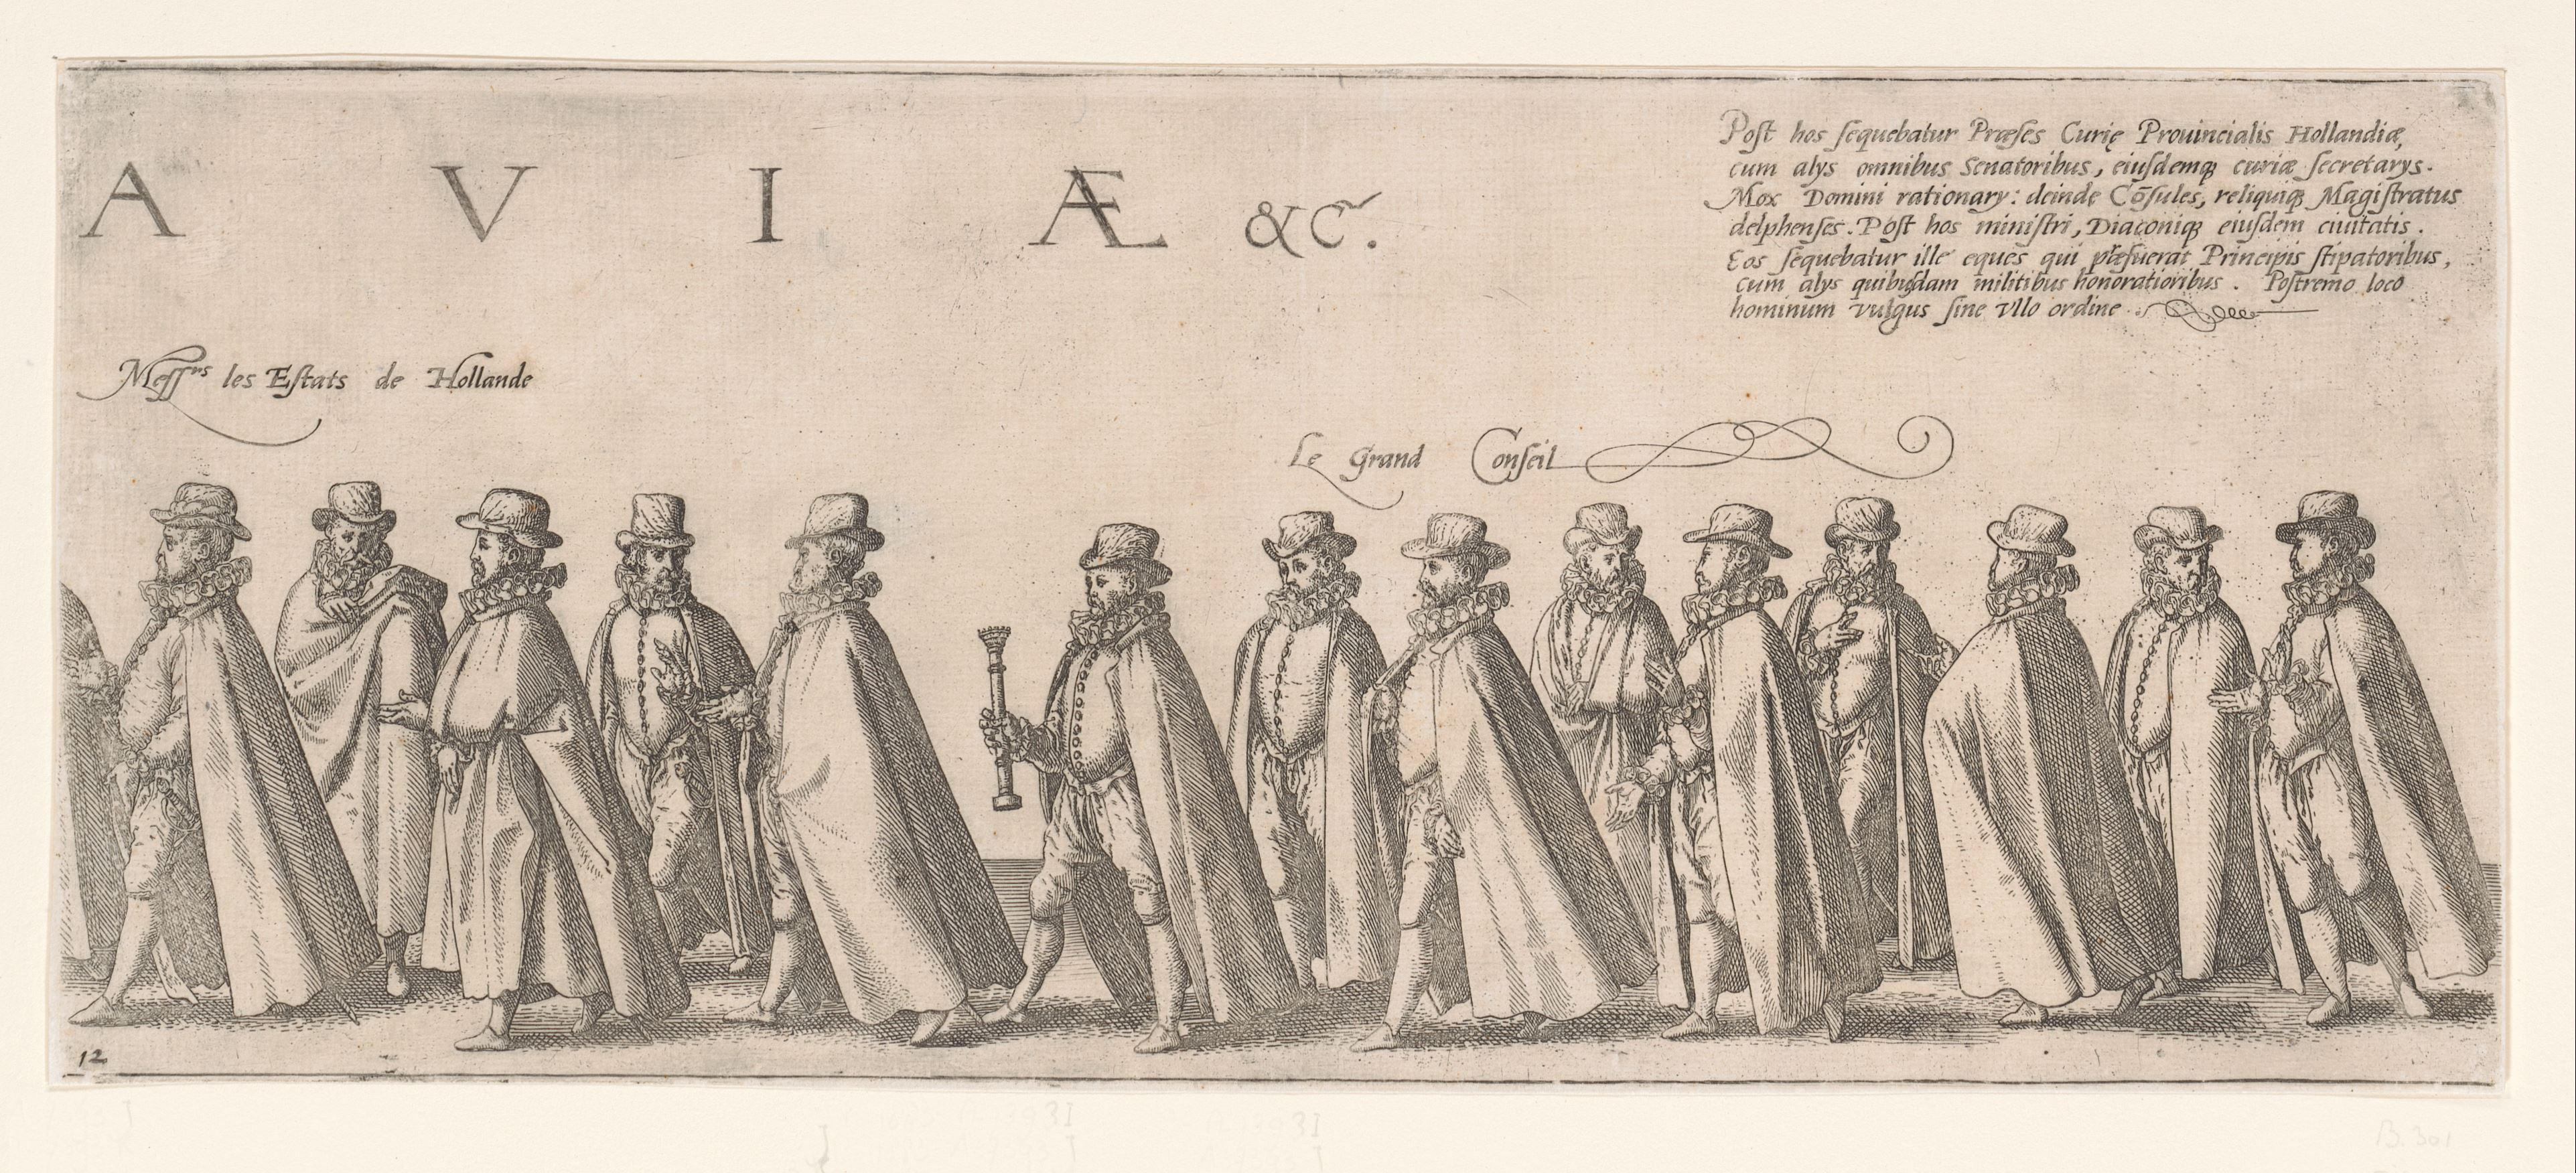 A V I Æ &c.
Poſt hos ſequebatur Præſes Curię Prouincialis Hollandiæ,
cum alys omnibus Senatoribus, eiuſdemq; curiæ ſecretarys.
Mox Domini rationary: deinde Cōſules, reliquiq; Magiſtratus
delphenſes. Poſt hos miniſtri, Diaconiq; eiuſdem ciuitatis.
Eos ſequebatur ille eques qui præfuerat Principis ſtipatoribus,
cum alys quibuſdam militibus honoratioribus. Poſtremo loco
hominum vulgus ſine vllo ordine
Meſſrs les Eſtats de Hollande
Le Grand Conſeil
12
B.301